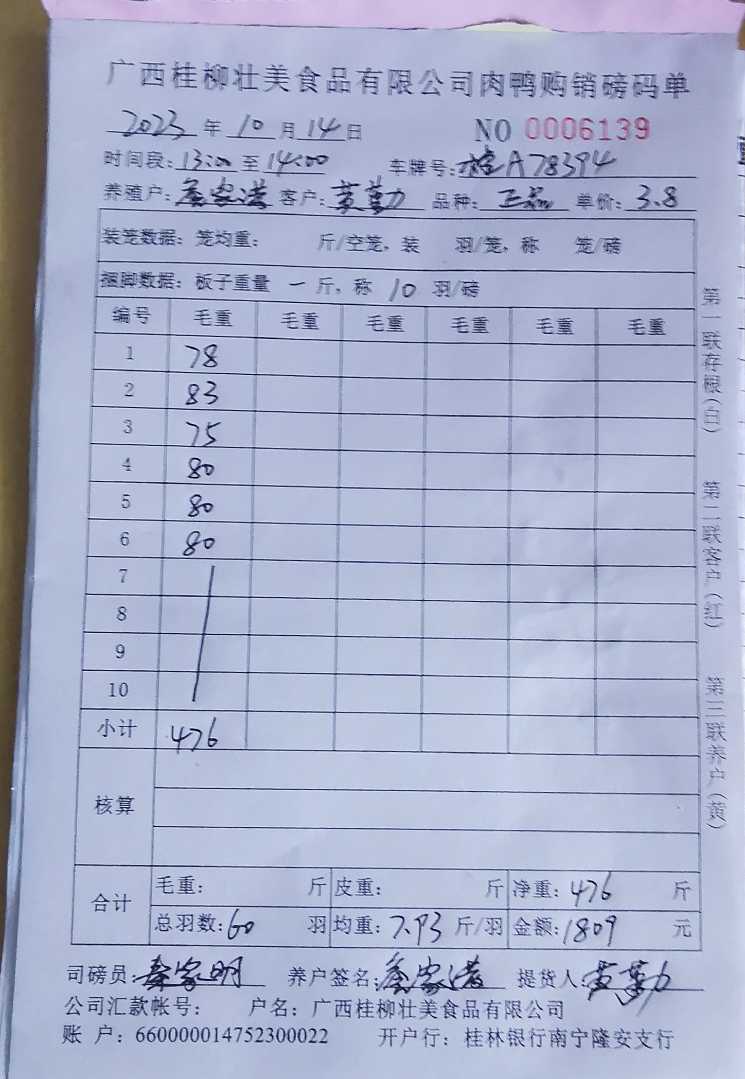 广西桂柳壮美食品有限公司肉鸭购销磅码单
2023年10月14日 NO 0006139
时间段:13:00至14:00 车牌号:桂A78394
养殖户:秦家满 客户:黄勤力 品种:正品 单价:3.8
装笼数据:笼均重: 斤/空笼,装 羽/笼,称 笼/磅
捆脚数据:板子重量 一 斤,称 10 羽/磅
编号 毛重 毛重 毛重 毛重 毛重 毛重
1 78
2 83
3 75
4 80
5 80
6 80
7
8
9
10
小计 476
核算
合计 毛重: 斤 皮重: 斤 净重:476 斤
总羽数:60 羽 均重:7.93 斤/羽 金额:1809 元
司磅员:秦家明 养户签名:秦家满 提货人:黄勤力
公司汇款帐号: 户名:广西桂柳壮美食品有限公司
账 户:660000014752300022 开户行:桂林银行南宁隆安支行
第一联存根(白)
第二联客户(红)
第三联养户(黄)